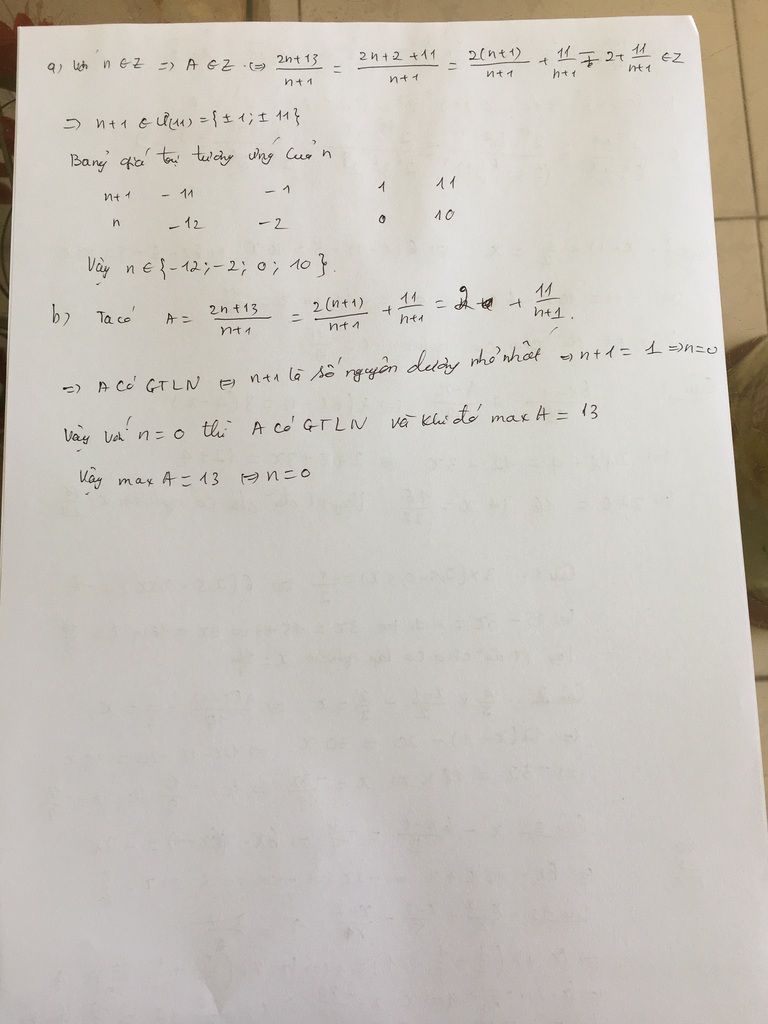 a) Với n ∈ Z => A ∈ Z <=> \frac{2n+13}{n+1} = \frac{2n+2+11}{n+1} = \frac{2(n+1)}{n+1} + \frac{11}{n+1} = 2+ \frac{11}{n+1} ∈ Z
=> n+1 ∈ Ư(11) = {±1; ±11}
Bảng giá trị tương ứng của n
n+1 -11 -1 1 11
n -12 -2 0 10
Vậy n ∈ {-12; -2; 0; 10}.
b) Ta có A = \frac{2n+13}{n+1} = \frac{2(n+1)}{n+1} + \frac{11}{n+1} = 2 + \frac{11}{n+1}.
=> A có GTLN <=> n+1 là số nguyên dương nhỏ nhất => n+1 = 1 => n=0
Vậy với n=0 thì A có GTLN và khi đó max A = 13
Vậy max A = 13 <=> n=0